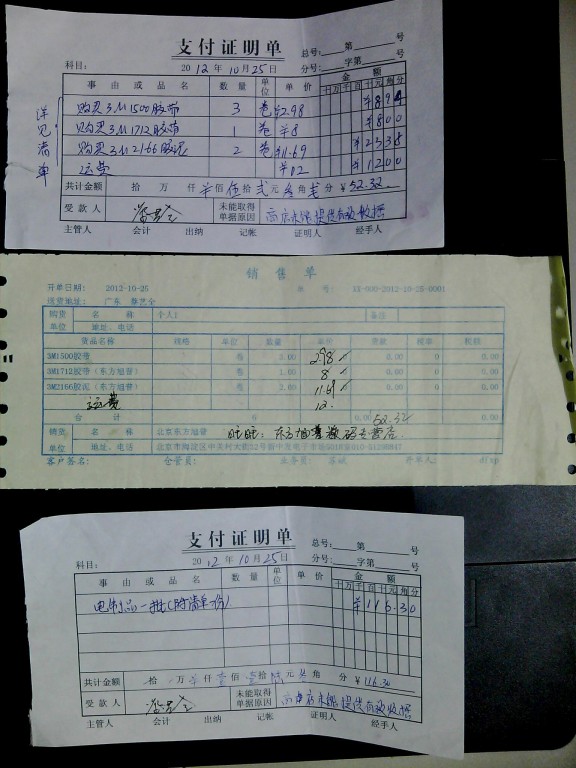 支付证明单
总号:　第　号
科目:　2012年10月25日　分号:　字第　号
事由或品名　数量　单位　单价　金额
十万千百十元角分
购买3M1500胶带　3　卷　¥2.98　¥894
购买3M1712胶带　1　卷　¥8　¥800
购买3M2166胶泥　2　卷　¥11.69　¥2338
运费　¥12　¥1200
详见清单
共计金额　拾　万　仟　佰伍拾贰元叁角贰分　¥52.32
受款人　未能取得单据原因　商店未能提供有效收据
主管人　会计　出纳　记帐　证明人　经手人
销售单
开单日期:　2012-10-25　号:　-000-2012-10-25-0001
送货地址:　广东
购货单位　名称　个人1　备注
地址、电话
货品名称　规格　单位　数量　单价　税率
3M1500胶带　卷　3.00　2.98　0.00　0　0.00
3M1712胶带（东方旭普）　卷　1.00　8　0.00　0　0.00
3M2166胶泥（东方旭普）　卷　2.00　11.69　0.00　0　0.00
运费　12.
合计　52.32　0.00　0.00
销货单位　名称　北京东方旭普　旺旺:东方旭普数码专营店
地址、电话　北京市海淀区中关村大街
客户签名:　仓管员:　业务员:　开单人:
支付证明单
总号:　第　号
科目:　2012年10月25日　分号:　字第　号
事由或品名　数量　单位　单价　金额
十万千百十元角分
电饰品一批(附清单一份)　¥116.30
共计金额　拾　万　仟壹佰壹拾陆元叁角　分　¥116.30
受款人　未能取得单据原因　商店未能提供有效收据
主管人　会计　出纳　记帐　证明人　经手人